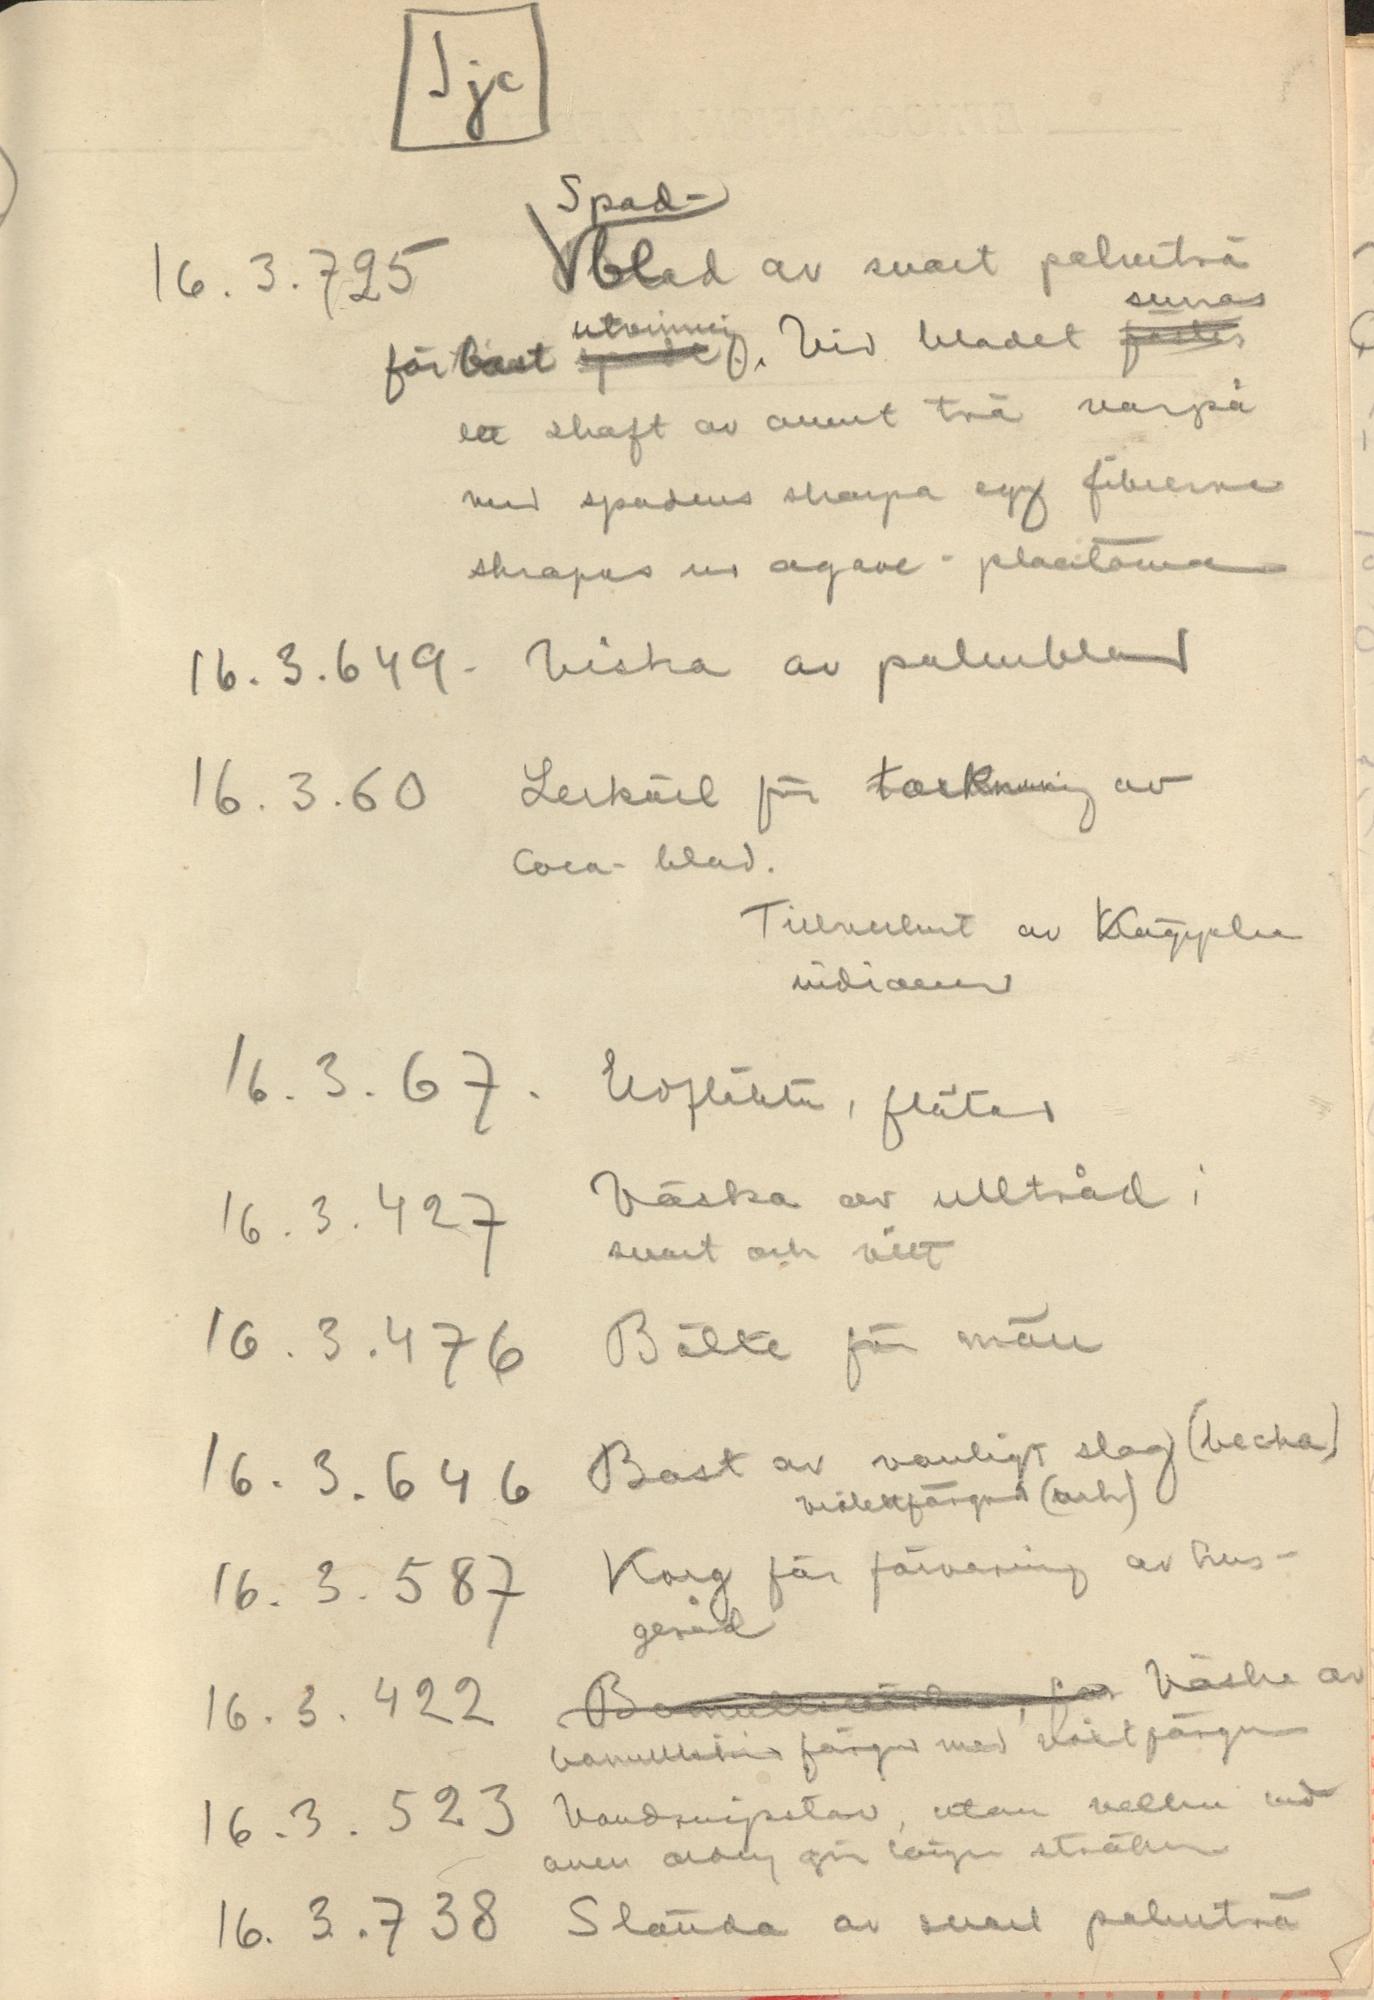 Ijc
Spad-
16.3.725 blad av svart palmträ
utvinning sunas
för bast spade. Vid bladet fästes
ett skaft av annat trä varpå
med spadens skarpa egg fibrerna
skrapas ur agave-plantorna
16.3.649- Viska av palmblad
16.3.60 Lerkärl för torkning av
Coca-blad.
Tillverkat av Kággaba
indianer
16.3.67. Eldfläkta, flätad
16.3.427 Väska av ulltråd i
svart och vitt
16.3.476 Bälte för män
16.3.646 Bast av vanligt slag (becka)
violettfärgad (och)
16.3.587 Korg för förvaring av hus-
geråd
16.3.422 Väska av
bomullstråd färgad med växtfärger
16.3.523 Vandringsstav, utan vilken
ingen
16.3.738 Slända av svart palmträ